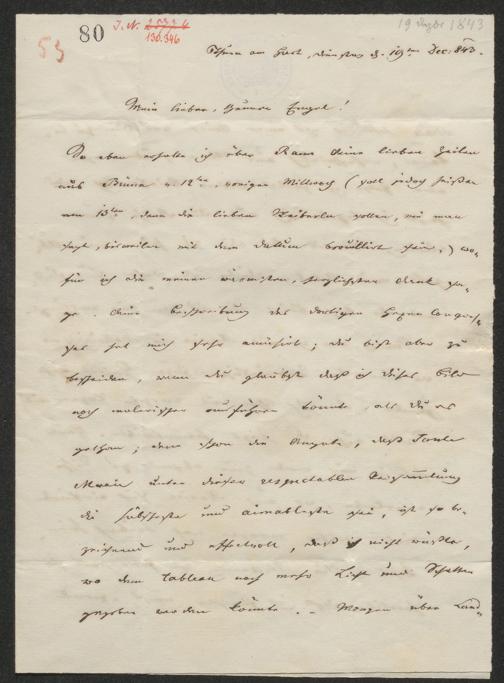 80
J. N. 25326
130.346
19 Dezbr 1843
53
Dienstag d. 19ten Dec. 843.
Mein lieber, Engel!
So eben erhalte ich über Raam deine lieben Zeilen
aus Brünn v. 12ten, vorigen Mittwoch (soll jedoch heißen
vom 13ten, denn die lieben Weiberln sollen, wie man
sagt, bisweilen mit dem Datum brouillirt sein,) wo-
für ich dir meinen wärmsten, herzlichsten Dank sa-
ge. Deine Beschreibung des dortigen
hat mich sehr amüsirt; du bist aber zu
bescheiden, wenn du glaubst daß ich dieses Bild
noch malerischer ausführen könnte, als du es
gethan; denn schon die Angabe, daß Tante
Marie unter dieser respectablen Versammlung
die hübscheste und aimableste sei, ist so be-
zeichnend und effectvoll, daß ich nicht wüßte,
wo dem Tableau noch mehr Licht und Schatten
gegeben werden könnte. – Morgen über